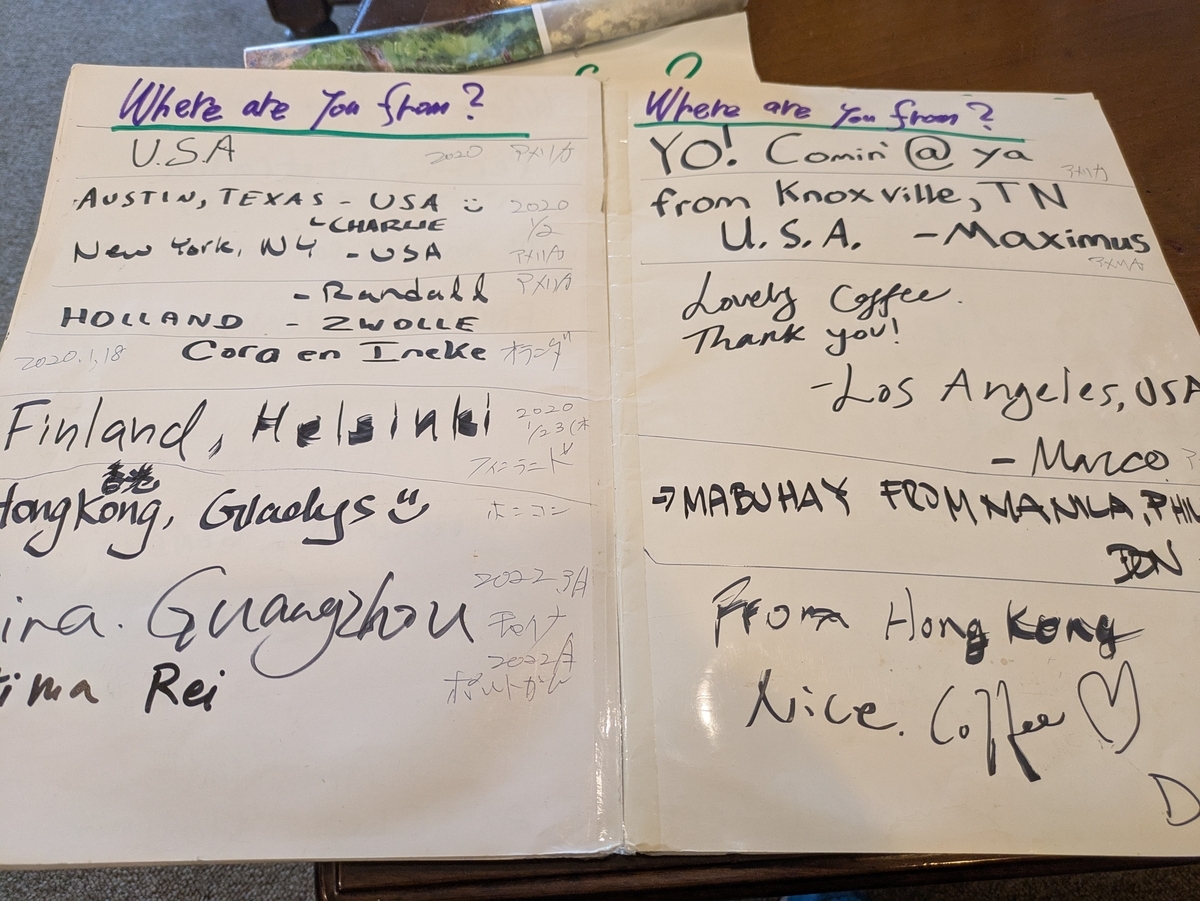 Where are You from?
U.S.A 2020 アメリカ
AUSTIN, TEXAS - USA 2020
- CHARLIE 1/2
New York, NY - USA アメリカ
- Randall アメリカ
HOLLAND - ZWOLLE
2020.1.18 Cora en Ineke オランダ
Finland, Helsinki 2020
1/23(木
フィンランド
香港
Hong Kong, Gladys ホンコン
2022.3月
ina. Guangzhou チャイナ
2022
ima Rei
Where are You from?
YO! Comin' @ ya アメリカ
from Knoxville, TN
U.S.A. - Maximus
アメリカ
Lovely Coffee.
Thank you!
- Los Angeles, USA
- Marco
→ MABUHAY FROM MANILA, PHIL
From Hong Kong
Nice. Coffee ♡
D